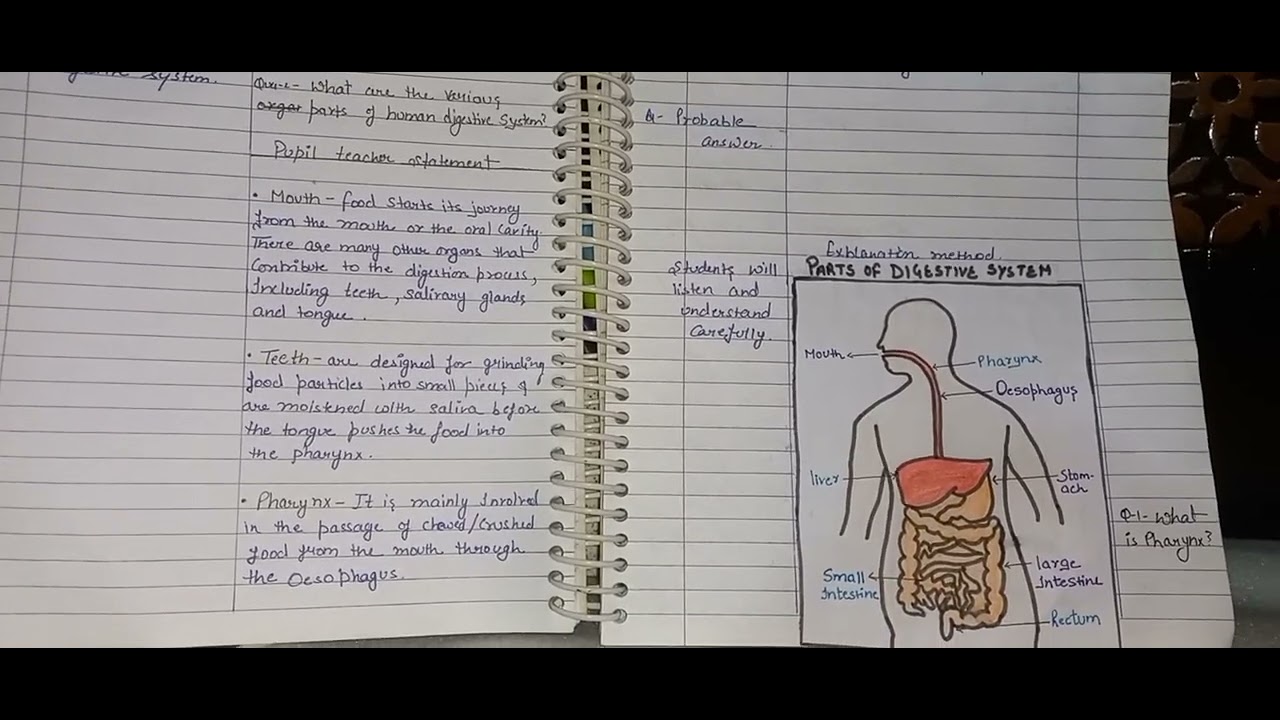 system.
Que-2- What are the various
organ parts of human digestive system?
Pupil teacher statement
• Mouth - food starts its journey
from the mouth or the oral cavity.
There are many other organs that
contribute to the digestion process,
Including teeth, salivary glands
and tongue.
• Teeth - are designed for grinding
food particles into small pieces &
are moistened with saliva before
the tongue pushes the food into
the pharynx.
• Pharynx - It is mainly involved
in the passage of chewed/crushed
food from the mouth through
the Oesophagus.
A- Probable
answer.
Students will
listen and
understand
carefully.
Explanation method.
PARTS OF DIGESTIVE SYSTEM
Mouth
Pharynx
Oesophagus
liver
Stom-
ach
Small
Intestine
large
Intestine
Rectum
Q-1- What
is Pharynx?